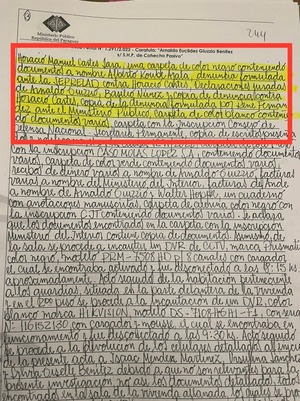 Ministerio Público
República del Paraguay
244
1.291/2.022 - Caratula: "Arnaldo Euclides Giuzzio Benitez
s/ S.H.P. de Cohecho Pasivo"
Horacio Manuel Cartes Jara, una carpeta de color negro conteniendo
documento a nombre Alberto Koube Ayala, denuncia formulada
ante la SEPRELAD contra Horacio Cartes, Declaraciones Juradas
de Arnaldo Giuzzio, Basilio Núñez, copia de denuncia contra
Horacio Cartes, copia de la denuncia formulada por
ante el Ministerio Público, Carpeta de color blanco contenien-
do documentos varios, carpeta con la inscripcion Consejo de
Defensa Nacional, Secretaría Permanente, copia de
con la inscripcion CASO MOLAS LOPEZ S.A. conteniendo documentos
varios, carpeta de color verde conteniendo documento varios,
recibos de dinero varios a nombre de Arnaldo Giuzzio, facturas
varias a nombre del Ministerio del Interior, facturas de Ande
a nombre de Arnaldo Giuzzio y un cuaderno
con anotaciones manuscritas, carpeta de color negro con
la inscripcion CJI conteniendo documentos varios. Se aclara
que los documentos encontrados en la carpeta con la inscripcion
Ministerio del Interior contiene copias de documentos. Asimismo, de
la sala se procede a incautar un DVR de CCTV, marca
color negro, modelo 8 canales con cargador,
el cual se encontraba activado y fue desconectado a las 8:15 hs
aproximadamente. Acto seguido de la habitacion perteneciente
a los guardias, situada en la parte delantera de la vivienda
en el 2do piso se procede a la incautacion de un DVR, color
blanco marca HIKVISION, modelo con serie
con cargador y mouse, el cual se encontraba en
funcionamiento y fue desconectado a las 9:30 hs. Acto seguido
se procede a la devolucion de los celulares detallados al inicio
de la presente acta a Isaac Mendez Martinez, Ursulina Sanchez
y debido a que no son relevantes para la
presente investigacion, no asi los documentos detallados
encontrados en la sala de la vivienda allanada, los cuales se